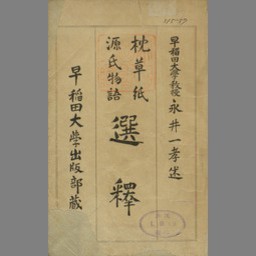 早稲田大学教授 永井一孝述
枕草紙
源氏物語
選釋
早稲田大学出版部蔵